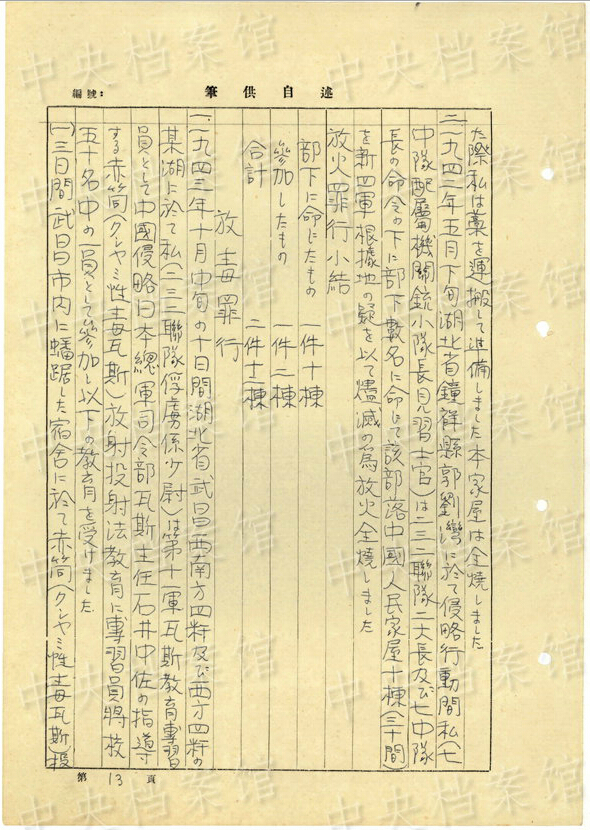 編號：
筆供自述
た際私は藁を運搬して準備しました本家屋は全燒しました
二、一九四二年五月下旬湖北省鐘祥縣郭劉灣に於て侵略行動間私（七
中隊配屬機關銃小隊長見習士官）は二三二聯隊二大長及び七中隊
長の命令の下に部下數名に命じて該部落中國人民家屋十棟（三十間）
を新四軍根據地の疑を以て燼滅の爲放火全燒しました
放火罪行小結
部下に命じたもの　一件十棟
參加したもの　一件二棟
合計　二件十二棟
放毒罪行
一、一九四三年十月中旬の十日間湖北省武昌西南方四粁及び西方四粁の
某湖に於て私（二三二聯隊俘虜係少尉）は第十一軍瓦斯教育專習
員として中國侵略日本總軍司令部瓦斯主任石井中佐の指導
する赤筒（クシャミ性毒瓦斯）放射投射法教育に專習員將校
五十名中の一員として參加し以下の教育を受けました
(一)三日間武昌市内に蟠踞した宿舍に於て赤筒（クシャミ性毒瓦斯）投
第 13 頁
中央档案馆